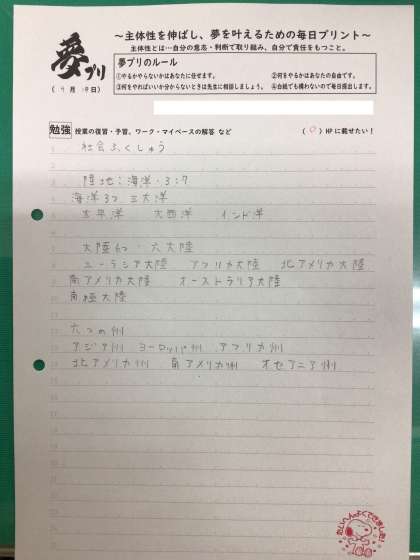 夢プリ
(4月19日)
～主体性を伸ばし、夢を叶えるための毎日プリント～
主体性とは…自分の意志・判断で取り組み、自分で責任をもつこと。
夢プリのルール
①やるかやらないかはあなたに任せます。 ②何をやるかはあなたの自由です。
③何をやればいいか分からないときは先生に相談しましょう。 ④白紙でも構わないので毎日提出します。
勉強 授業の復習・予習、ワーク・マイペースの解答 など (○)HPに載せたい！
社会ふくしゅう
陸地:海洋・3:7
海洋3つ 三大洋
太平洋 大西洋 インド洋
大陸6つ・六大陸
ユーラシア大陸 アフリカ大陸 北アメリカ大陸
南アメリカ大陸 オーストラリア大陸
南極大陸
六つの州
アジア州 ヨーロッパ州 アフリカ州
北アメリカ州 南アメリカ州 オセアニア州
たいへんよくできました!